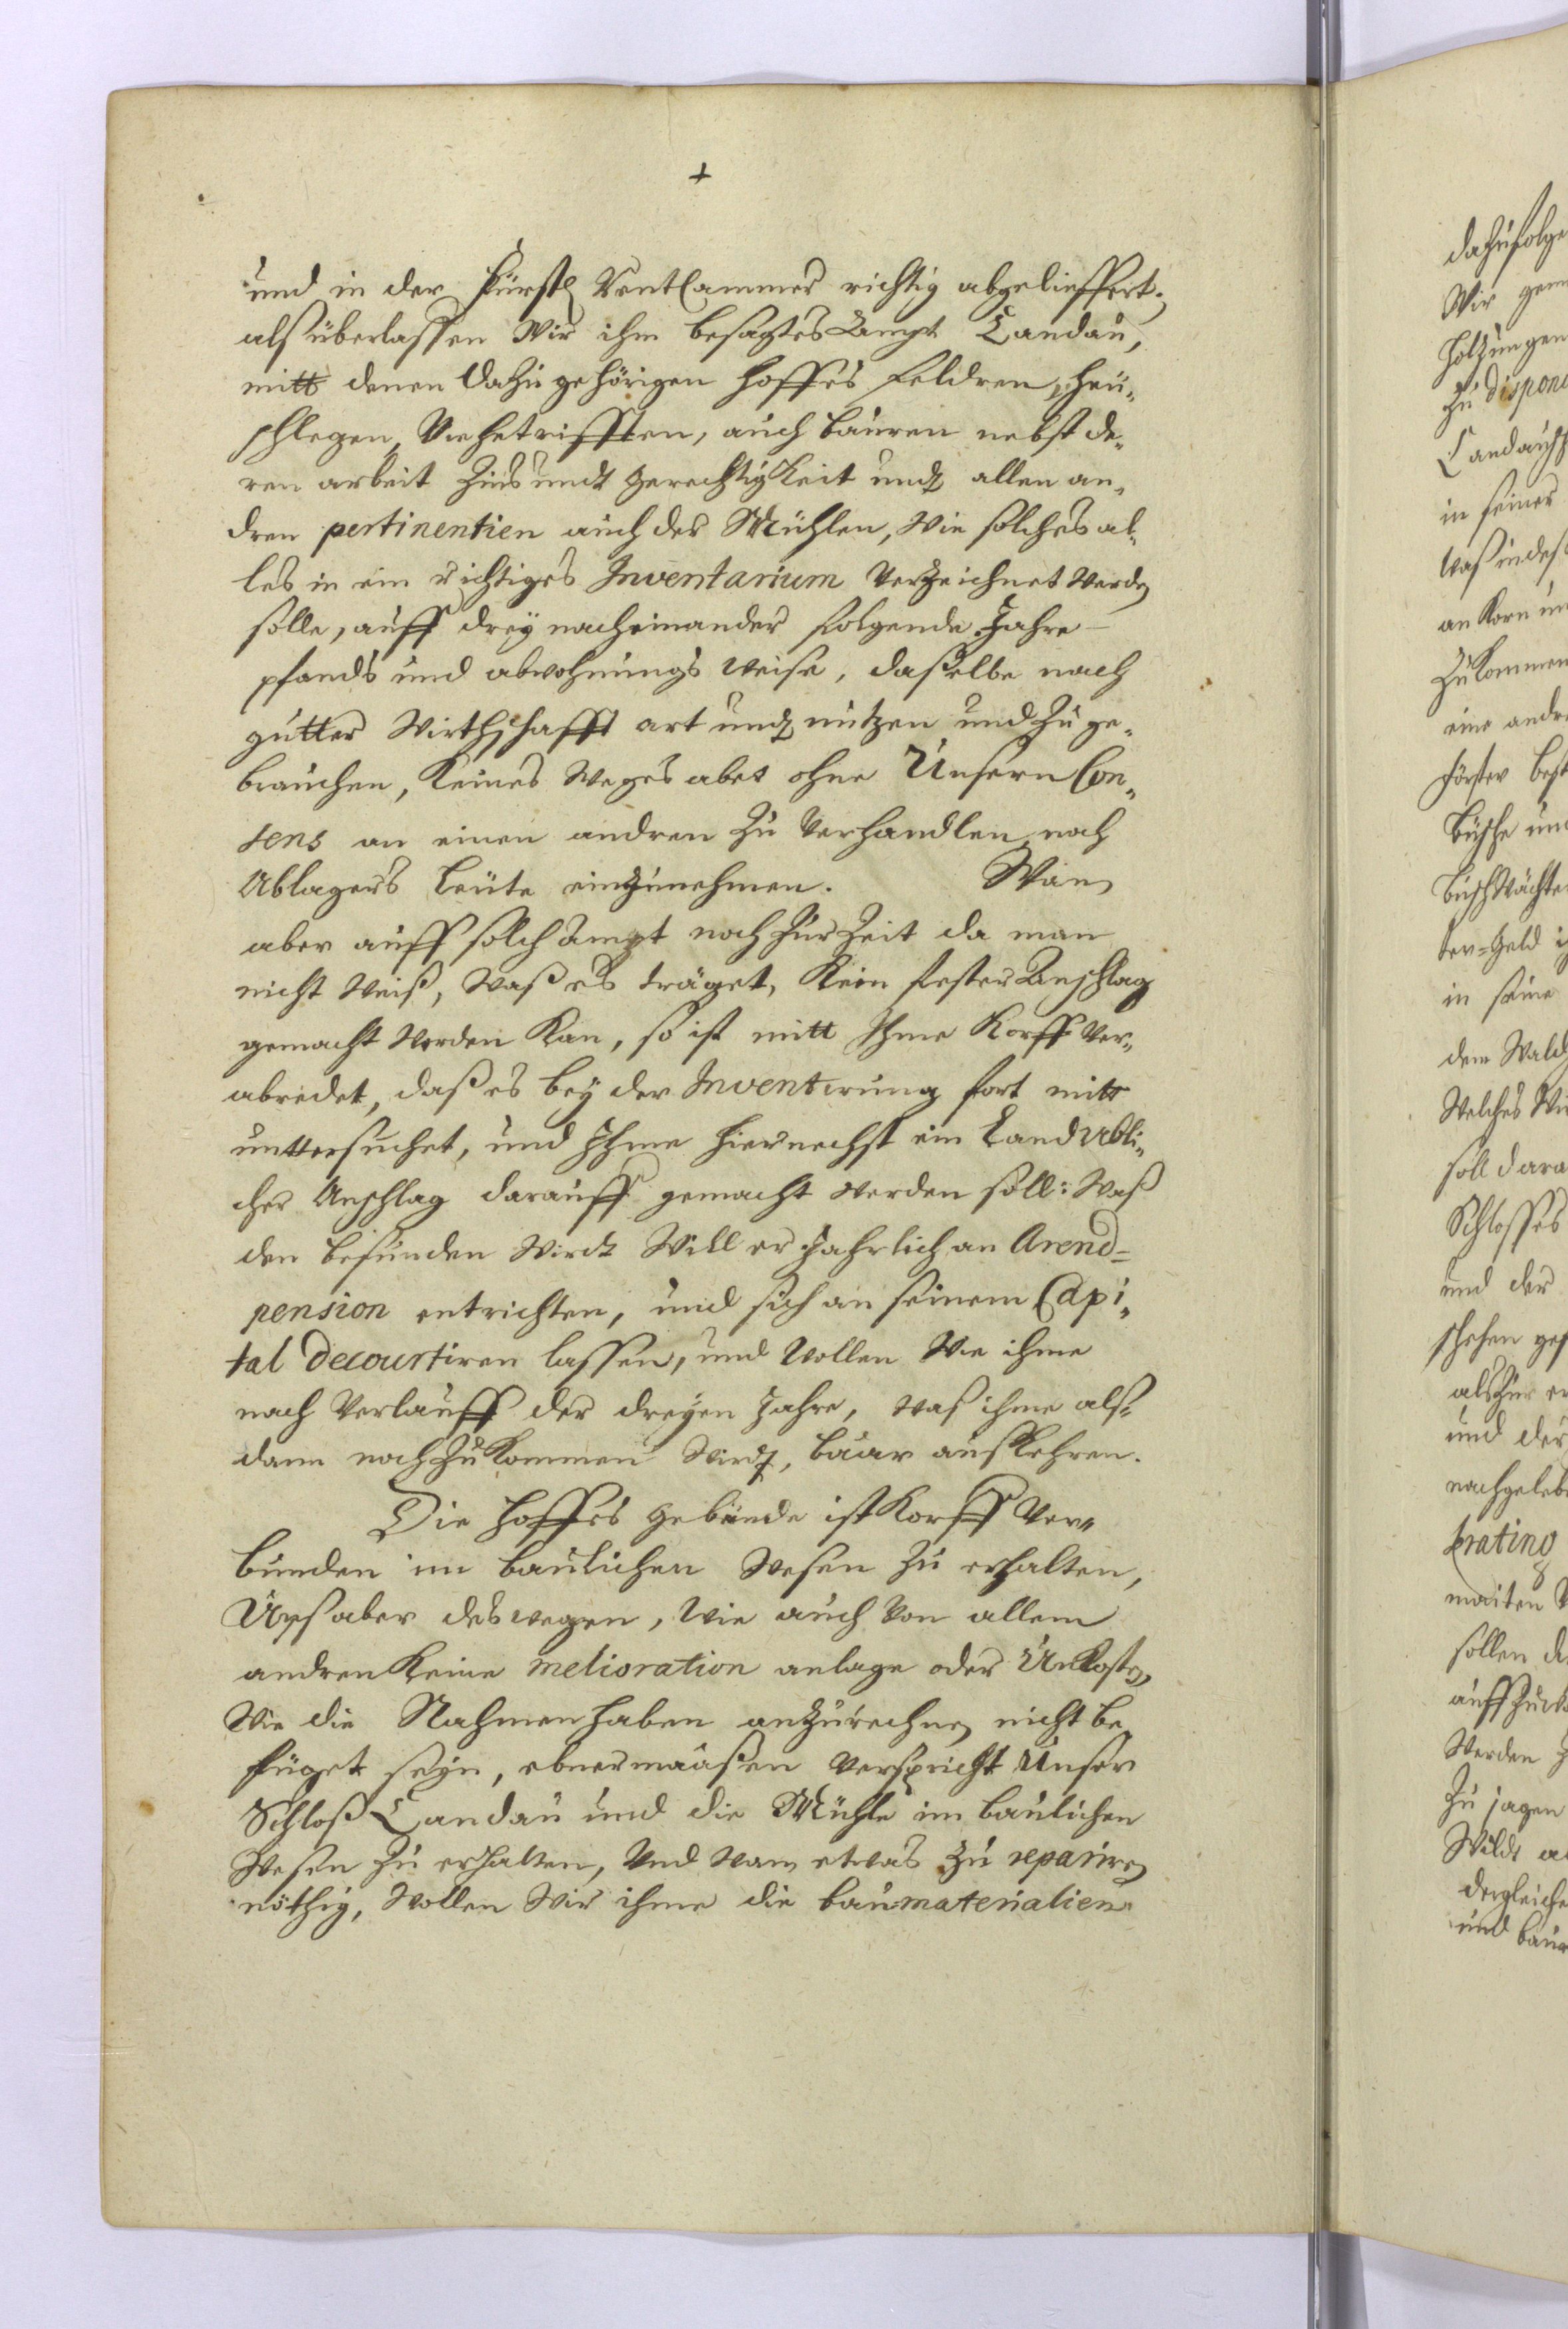 +
und in der Fürstl RentCammer richtig abgelieffert.
alß überlassen Wir ihm besagtes Ampt Candau,
mitt denen dazu gehörigen Hoffes Feldren, Heu„
schlegen, Viehetrifften, auch Bauren nebst de„
ren arbeit Zins undt Gerechtigkeit undt allen an„
dren pertinentien auch der Mühlen, Wie solches al„
les in ein richtiges Inventarium Verzeichnet Werden
solle, auff drey nacheinander folgende Jahre
pfands und abwohnungs Weise, dasselbe nach
gutter Wirthschafft art undt nutzen und Zu ge„
brauchen, Keines Weges aber ohne Unsern Con„
sens an einen andren Zu Verhandlen, noch
Ablagers Leute einzunehmen. Wan
aber auff solch Ampt noch Zur Zeit da man
nicht Weiß, Waß es träget, Kein fester Anschlag
gemacht Werden Kan, so ist mitt Ihme Korff Ver„
abredet, daß es bey der Inventirung fort mitt
unttersuchet, und Ihme hiernechst ein Land Ubli„
cher Anschlag darauff gemacht werden soll: Waß
den befunden Wirdt Will er Jahrlich an Arend=
pension entrichten, und sich an seinem Capi„
tal decourtiren lassen, und Wollen Wie ihme
nach Verlauff der dreyen Jahre, waß ihme alß=
dann noch Zu Kommen Wirdt, baar auskehren.
Die Hoffes Gebäude ist Korff Ver„
bunden im baulichen Wesen Zu erhalten,
Unß aber deswegen, Wie auch Von allem
andren Keine melioration anlage oder Unkosten,
Wie die Nahmen haben anzurechnen nicht be„
fuget seyn, ebnermaaßen Verspricht Unser
Schloß Candau und die Mühle im baulichen
Wesen Zu erhalten, Und Wan etwas Zu repariren
nöthig, Wollen Wir ihme die baumaterialien
dazu folge
Wir gen
Holtzungen
Zu dispon
Candausch
in seiner
an Korn un
Zu Kommen
eine andr
Förster best
Büsche und
Buschwächte
ter=Geld i
in seine
dem Wald
Welches Wi
soll dara
Schlosses
und der
als Zur er
und der
nachgeleb
sollen d
Werden
Zu jagen
Wildt a
dergleiche
und baur